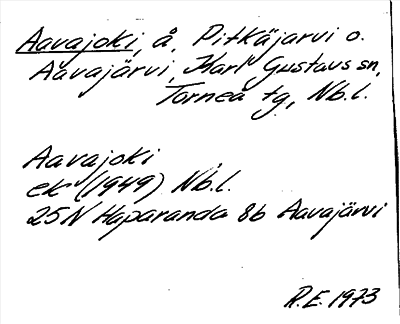 Aavajoki, å, Pitkäjarvi o.
Aavajärvi, Karl Gustavs sn,
Torneå tg, Nb.l.
Aavajoki
ek (1949) Nb.l.
25N Haparanda 8b Aavajärvi
R.E. 1973